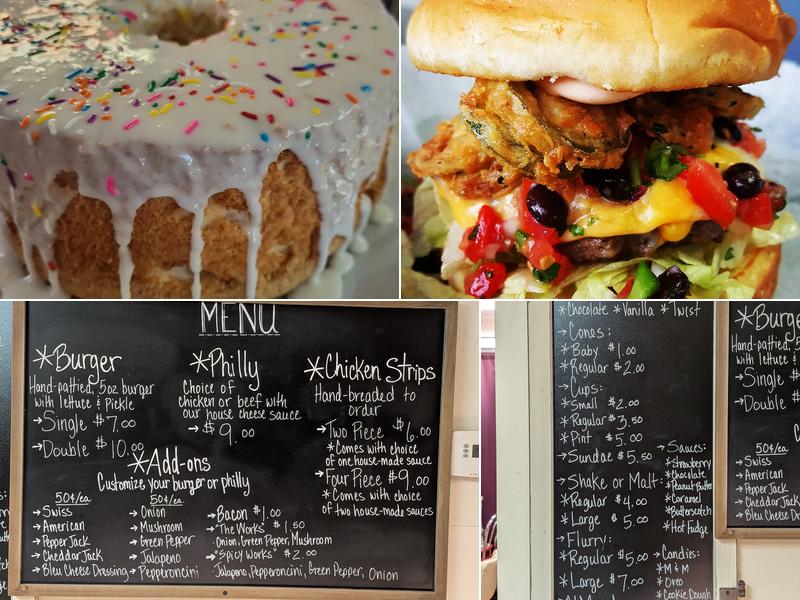 MENU
*Burger
Hand-pattied, 5oz burger
with lettuce & Pickle
→Single $7.00
→Double $10.00
*Philly
Choice of
chicken or beef with
our house cheese sauce
→$9.00
*Chicken Strips
Hand-breaded to
order
→Two Piece $6.00
*Comes with choice
of one house-made sauce
→Four Piece $9.00
*Comes with choice
of two house-made sauces
*Add-ons
Customize your burger or philly
50¢/ea
→Swiss
→American
→Pepper Jack
→Cheddar Jack
→Bleu Cheese Dressing
50¢/ea
→Onion
→Mushroom
→Green Pepper
→Jalapeno
→Pepperoncini
→Bacon $1.00
→"The Works" $1.50
Onion, Green Pepper, Mushroom
→"Spicy Works" $2.00
Jalapeno, Pepperoncini, Green Pepper, Onion
*Chocolate *Vanilla *Twist
→Cones:
*Baby $1.00
*Regular $2.00
→Cups:
*Small $2.00
*Regular $3.50
*Pint $5.00
→Sundae $5.50
→Shake or Malt:
*Regular $4.00
*Large $5.00
→Flurry:
*Regular $5.00
*Large $7.00
→Sauces:
*Strawberry
*Chocolate
*Peanut Butter
*Caramel
*Butterscotch
*Hot Fudge
→Candies:
*M&M
*Oreo
*Cookie Dough
*Burge
Hand-pattied,
with lettuce &
→Single $
→Double $
50¢/ea
→Swiss
→American
→Pepper Jack
→Cheddar Jack
→Bleu Cheese Dres